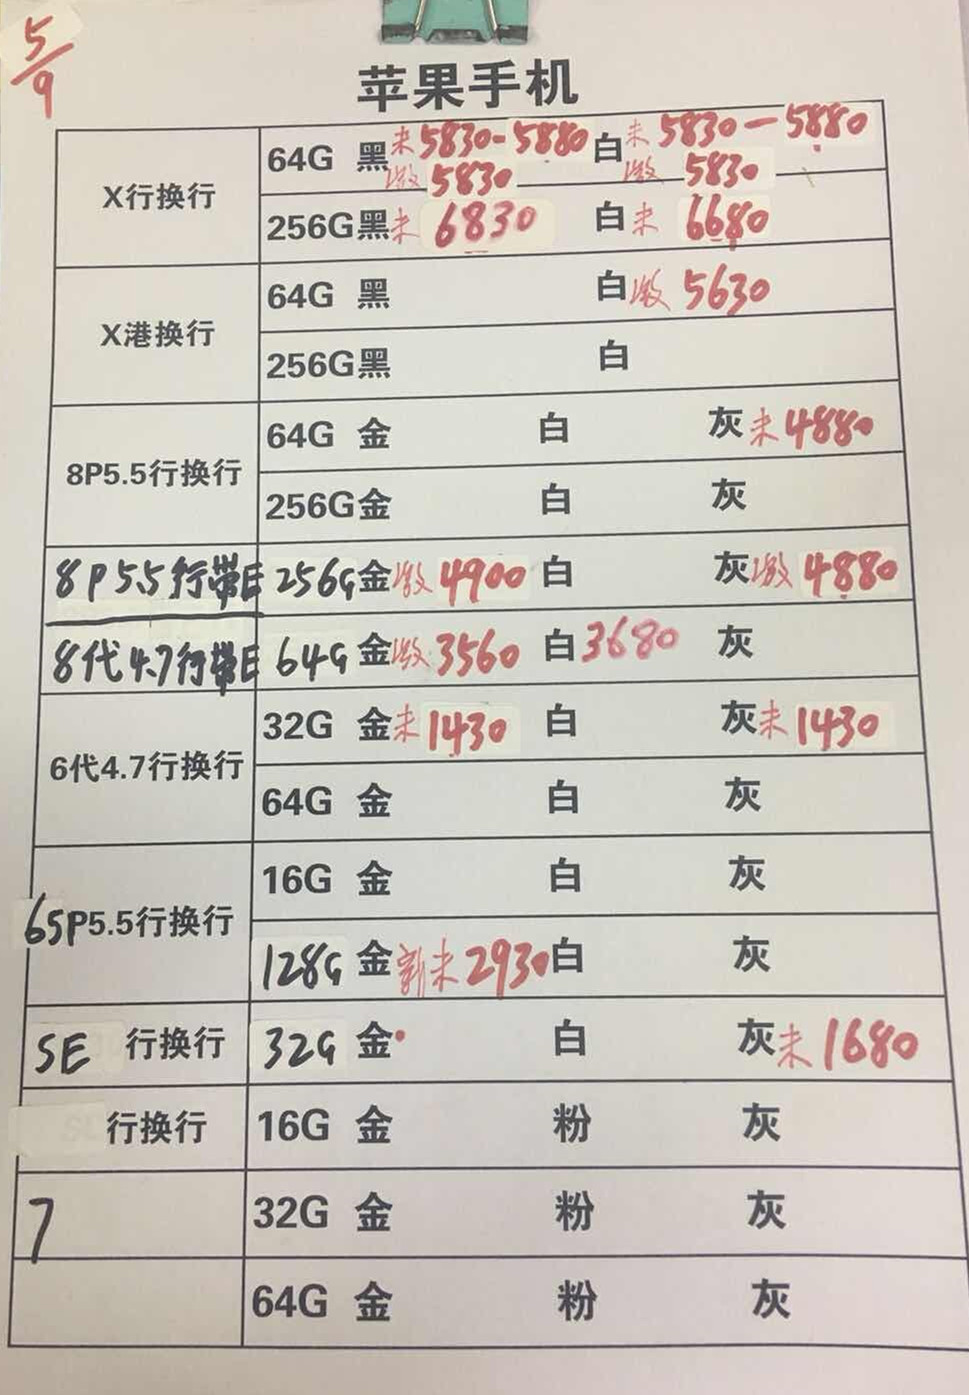 5/9
苹果手机
X行换行 64G 黑 未 5830-5880 白 未 5830-5880
激 5830 激 5830
256G 黑 未 6830 白 未 6680
X港换行 64G 黑 白 激 5630
256G 黑 白
8P5.5行换行 64G 金 白 灰 未 4880
256G 金 白 灰
8P5.5行带E 256G 金 激 4900 白 灰 激 4880
8代4.7行带E 64G 金 激 3560 白 3680 灰
6代4.7行换行 32G 金 未 1430 白 灰 未 1430
64G 金 白 灰
6SP5.5行换行 16G 金 白 灰
128G 金 新未 2930 白 灰
SE 行换行 32G 金 白 灰 未 1680
行换行 16G 金 粉 灰
7 32G 金 粉 灰
64G 金 粉 灰